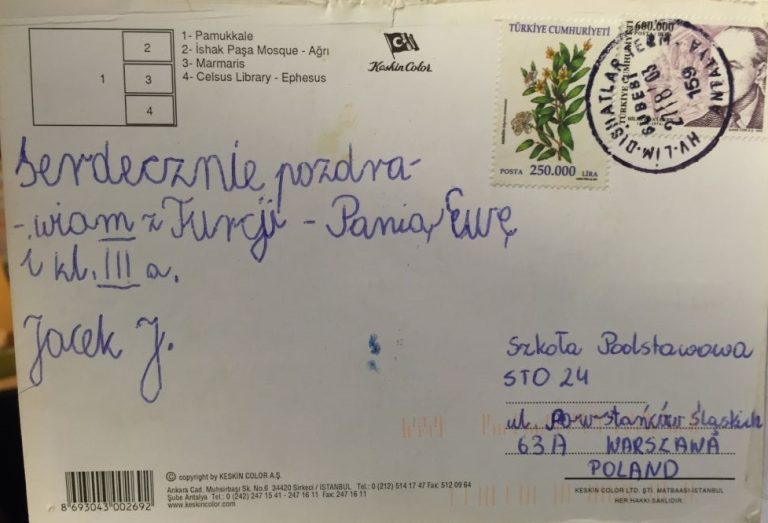 1- Pamukkale
2- İshak Paşa Mosque - Ağrı
3- Marmaris
4- Celsus Library - Ephesus
1
2
3
4
Keskin Color
TÜRKİYE CUMHURİYETİ
POSTA 250.000 LİRA
600.000
TÜRKİYE CUMHURİYETİ
HV. LİM. DIŞHATLAR
ŞUBESİ
2/18/03
159
ANTALYA
Serdecznie pozdra-
-wiam z Turcji - Panią Ewę
i kl. III a.
Jacek J.
Szkoła Podstawowa
STO 24
ul. Powstańców Śląskich
63A WARSZAWA
POLAND
8 693043 002692
© copyright by KESKİN COLOR A.Ş.
Ankara Cad. Muhsirbaşı Sk. No.6 34420 Sirkeci / İSTANBUL Tel.: 0 (212) 514 17 47 Fax: 512 09 64
Şube Antalya Tel.: 0 (242) 247 15 41 - 247 16 11 Fax: 247 16 11
www.keskincolor.com
KESKİN COLOR LTD. ŞTİ. MATBAASI-İSTANBUL
HER HAKKI SAKLIDIR.